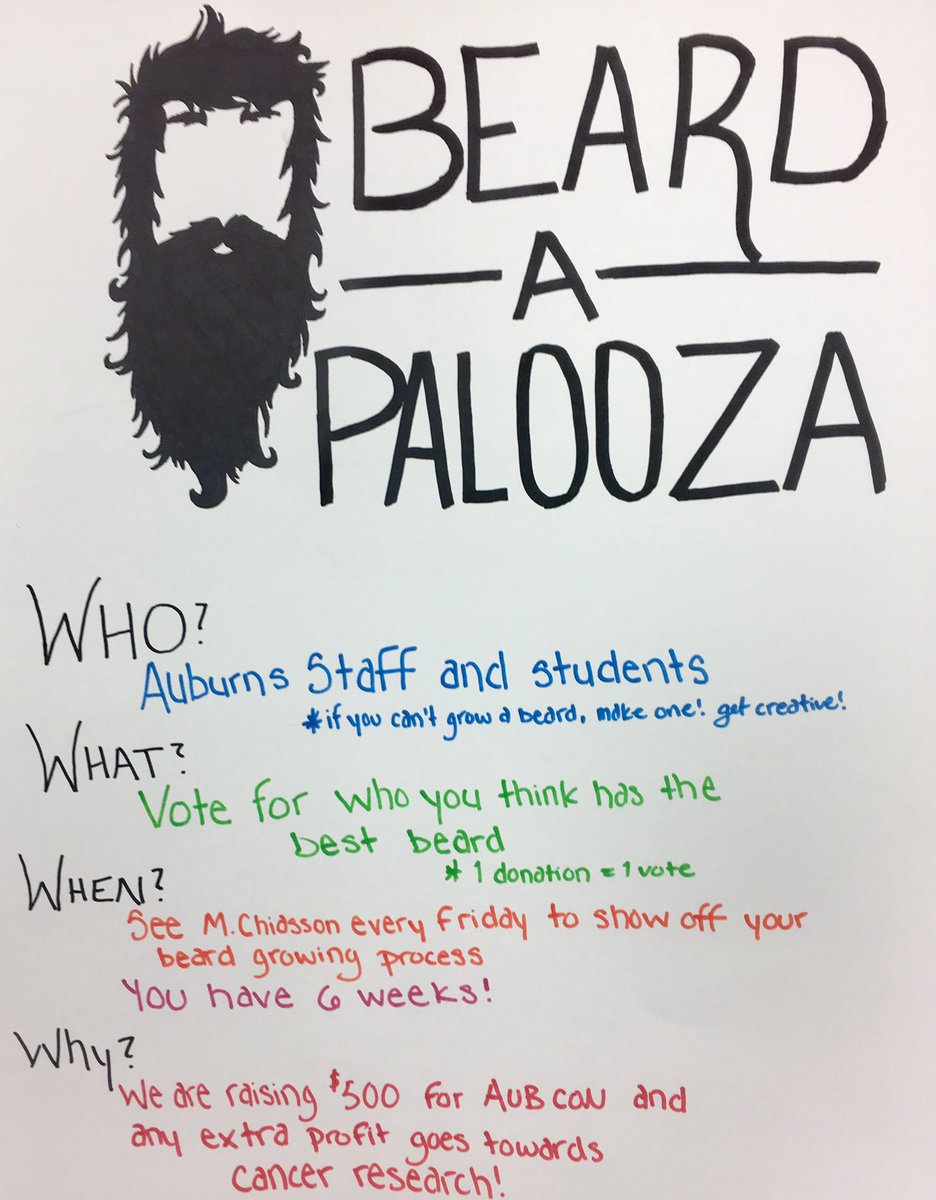 BEARD
A
PALOOZA
WHO?
Auburns Staff and students
*if you can't grow a beard, make one! get creative!
WHAT?
Vote for who you think has the
best beard
* 1 donation = 1 vote
WHEN?
See M.Chiasson every Friday to show off your
beard growing process
You have 6 weeks!
Why?
We are raising $500 for AUBCON and
any extra profit goes towards
cancer research!